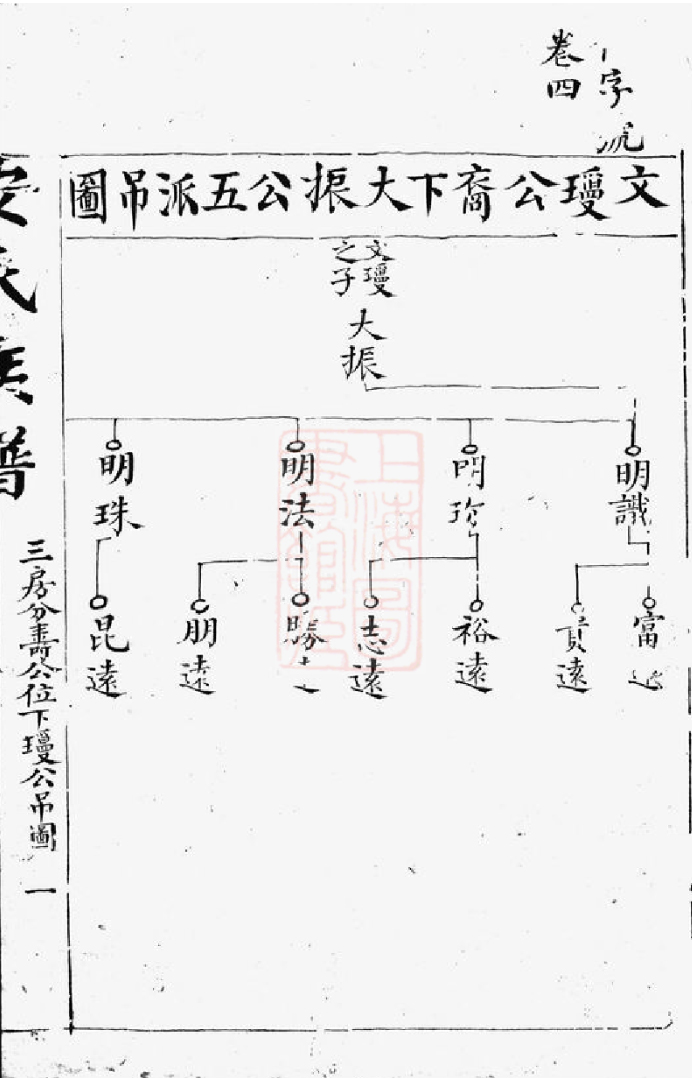 卷四
字派
文瓊公裔下大振公五派吊圖
文瓊
之子
大振
明識
明珍
明法
明珠
富
貴遠
裕遠
志遠
勝
朋遠
昆遠
安氏族譜
三房分壽公位下瓊公吊圖
一
上海圖書館藏